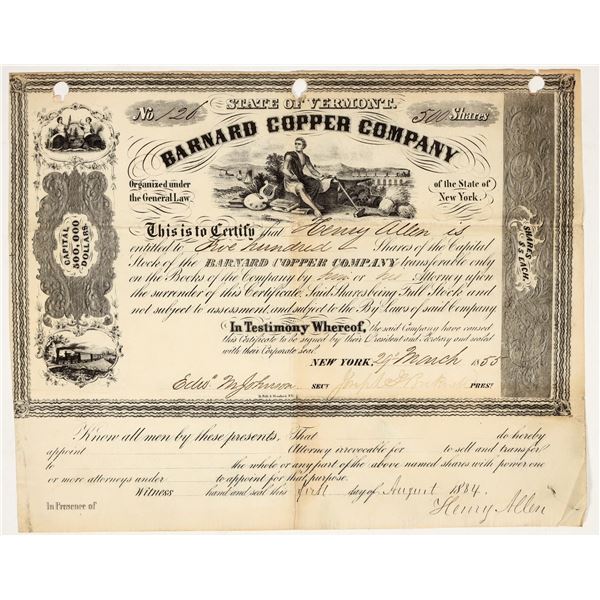 STATE OF VERMONT.
No. 126
500 Shares
BARNARD COPPER COMPANY
Organized under
the General Law
of the State of
New York.
CAPITAL
500,000
DOLLARS
SHARES
$5 EACH.
This is to Certify that Henry Allen is
entitled to Five hundred Shares of the Capital
Stock of the BARNARD COPPER COMPANY transferable only
on the Books of the Company by him or his Attorney upon
the surrender of this Certificate. Said Shares being Full Stock and
not subject to assessment, and subject to the By Laws of said Company
In Testimony Whereof, the said Company have caused
this Certificate to be signed by their President and Secretary and sealed
with their Corporate Seal.
NEW YORK, 29 March 1855
Edwd M Johnson SECY Joseph PREST
Know all men by these presents, That do hereby
appoint Attorney irrevocable for to sell and transfer
to the whole or any part of the above named shares with power one
or more attorneys under to appoint for that purpose.
Witness hand and seal this first day of August 1884.
In Presence of
Henry Allen